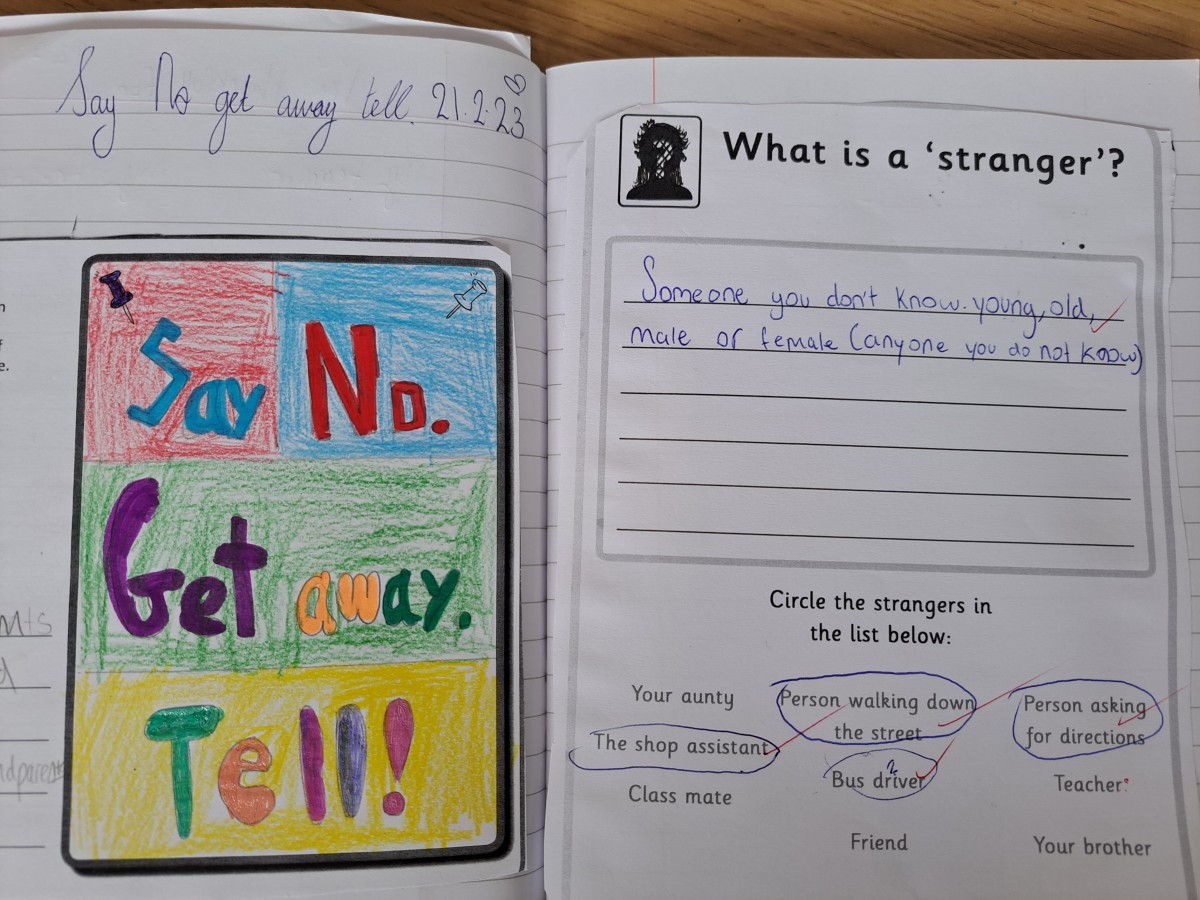 Say No get away tell. 21.2.23
Say No.
Get away.
Tell!
What is a ‘stranger’?
Someone you don't know. young, old,
male or female (anyone you do not know)
Circle the strangers in
the list below:
Your aunty
Person walking down
the street
Person asking
for directions
The shop assistant
Bus driver
Teacher
Class mate
Friend
Your brother